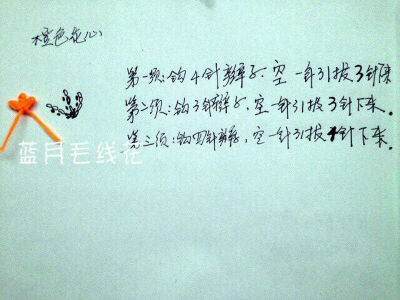 橙色花心
第一须:钩4针辫子.空一针引拔3针下来
第二须:钩3针辫子.空一针引拔3针下来.
第三须:钩四针辫,空一针引拔4针下来.
蓝月毛线花